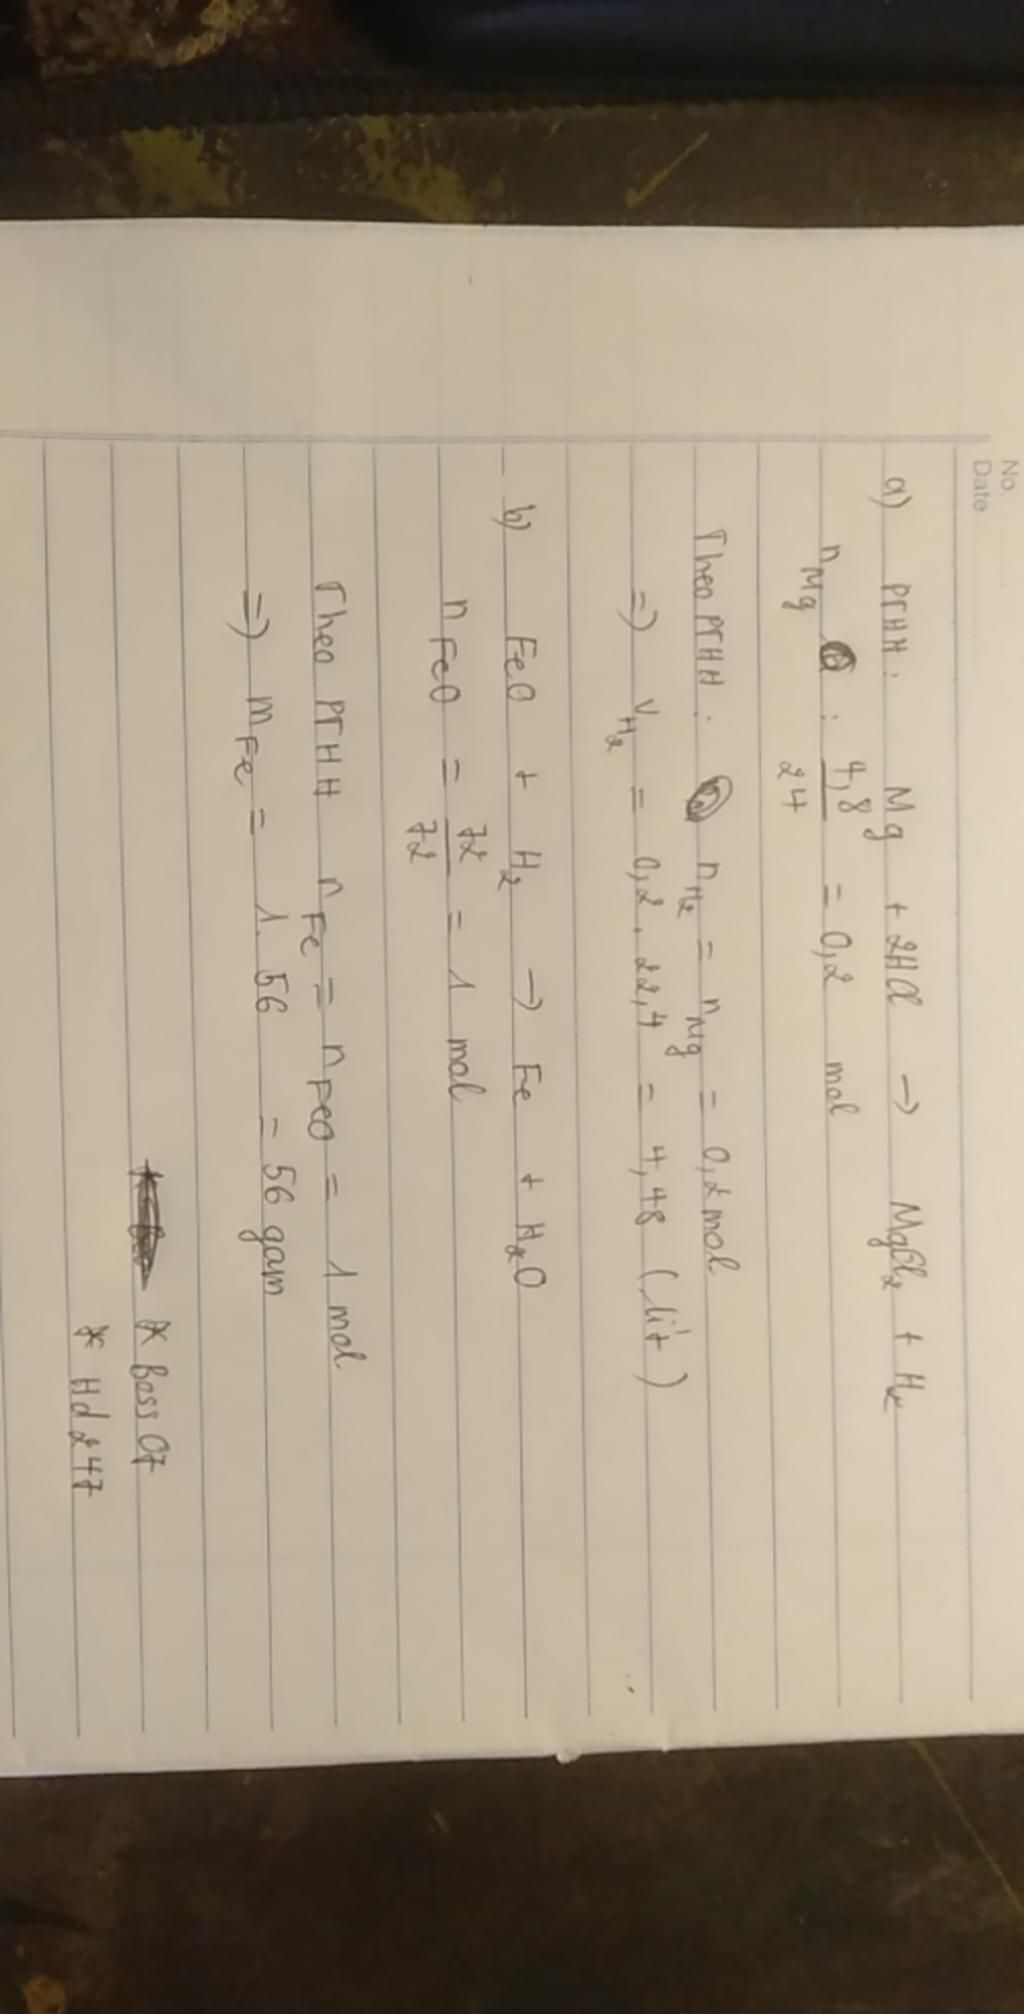 No.
Date
a) PTHH: Mg + 2HCl → MgCl₂ + H₂
n Mg : 4,8/24 = 0,2 mol
Theo PTHH: n H₂ = n Mg = 0,2 mol
=) V H₂ = 0,2 . 22,4 = 4,48 (lít)
b) FeO + H₂ → Fe + H₂O
n FeO = 72/72 = 1 mol
Theo PTHH n Fe = n FeO = 1 mol
=) m Fe = 1. 56 = 56 gam
* Boss 07
* Hd 247